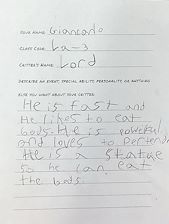 YOUR NAME: Giancarlo
CLASS CODE: La-3
CRITTER'S NAME: Lord
DESCRIBE AN EVENT, SPECIAL ABILITY, PERSONALITY OR ANYTHING
ELSE YOU WANT ABOUT YOUR CRITTER:
He is fast and
He likes to eat
bods. He is poweful
and loves to pertend
He is a statue
so he can eat
the bods.